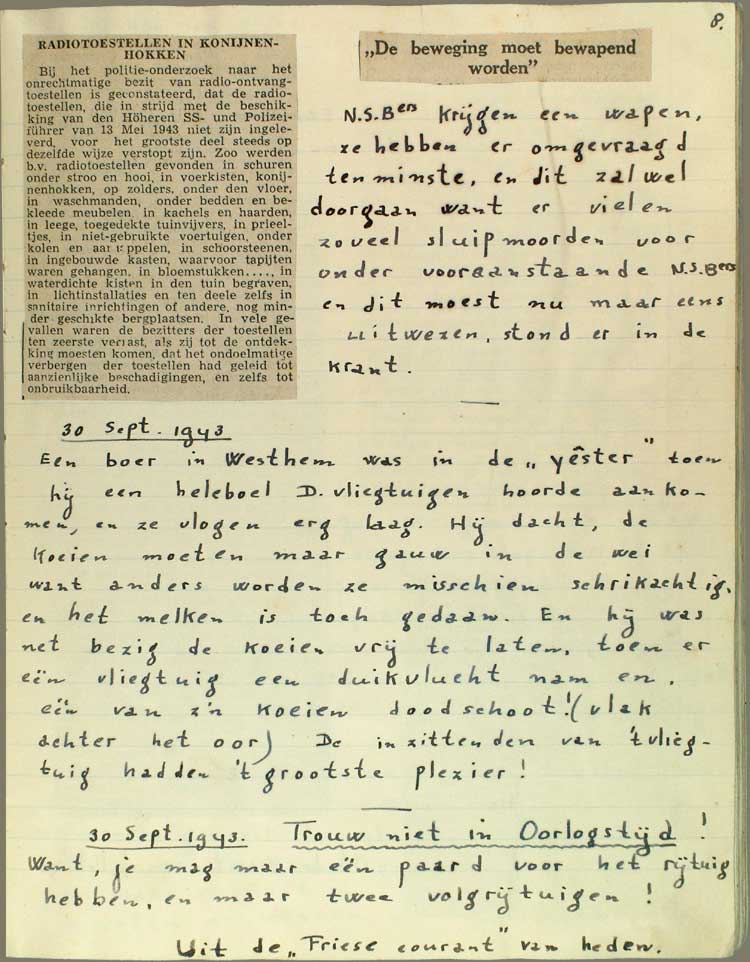 8.
RADIOTOESTELLEN IN KONIJNEN-
HOKKEN
Bij het politie-onderzoek naar het
onrechtmatige bezit van radio-ontvang-
toestellen is geconstateerd, dat de radio-
toestellen, die in strijd met de beschik-
king van den Höheren SS- und Polizei-
führer van 13 Mei 1943 niet zijn ingele-
verd, voor het grootste deel steeds op
dezelfde wijze verstopt zijn. Zoo werden
b.v. radiotoestellen gevonden in schuren
onder stroo en hooi, in voerkisten, konij-
nenhokken, op zolders, onder den vloer,
in waschmanden, onder bedden en be-
kleede meubelen, in kachels en haarden,
in leege, toegedekte tuinvijvers, in prieel-
tjes, in niet-gebruikte voertuigen, onder
kolen en aardappelen, in schoorsteenen,
in ingebouwde kasten, waarvoor tapijten
waren gehangen, in bloemstukken...., in
waterdichte kisten in den tuin begraven,
in lichtinstallaties en ten deele zelfs in
sanitaire inrichtingen of andere, nog min-
der geschikte bergplaatsen. In vele ge-
vallen waren de bezitters der toestellen
ten zeerste verrast, als zij tot de ontdek-
king moesten komen, dat het ondoelmatige
verbergen der toestellen had geleid tot
aanzienlijke beschadigingen, en zelfs tot
onbruikbaarheid.
„De beweging moet bewapend
worden”
N.S.Bers krijgen een wapen,
ze hebben er omgevraagd
tenminste, en dit zal wel
doorgaan want er vielen
zoveel sluipmoorden voor
onder vooraanstaande N.S.Bers
en dit moest nu maar eens
uitwezen, stond er in de
krant.
30 Sept. 1943
Een boer in Westhem was in de „yêster” toen
hij een heleboel D. vliegtuigen hoorde aanko-
men, en ze vlogen erg laag. Hij dacht, de
koeien moeten maar gauw in de wei
want anders worden ze misschien schrikachtig.
en het melken is toch gedaan. En hij was
net bezig de koeien vrij te laten, toen er
eén vliegtuig een duikvlucht nam en,
eén van z'n koeien doodschoot! (vlak
achter het oor) De inzittenden van 't vlieg-
tuig hadden 't grootste plezier!
30 Sept. 1943. Trouw niet in Oorlogstijd!
Want, je mag maar eén paard voor het rijtuig
hebben, en maar twee volgrijtuigen!
Uit de „Friese courant” van heden.